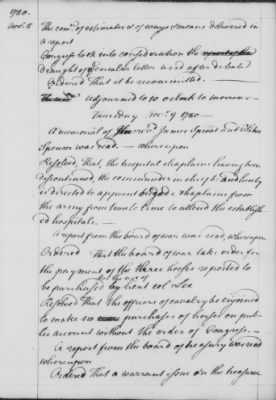 1780.
Nov. 8
The comee. of estimates & of ways & means delivered in
a report
Congress took into consideration the report of the
draught of a circular letter and after debate
Ordered That it be recommitted.
Adjourned to 10 oClock to morrow
Thursday Nov. 9 1780
A memorial of James Sproat and Elihu
Spencer was read. whereupon
Resolved, That, the hospital chaplains having been
discontinued, the commander in chief be and hereby
is directed to appoint a chaplain from
the army from time to time to attend the establish
ed hospitals.
A report from the board of war was read, whereupon
Ordered That the board of war take order for
the payment of the three horses reported to
be purchased by lieut col Lee
Resolved That the officers of cavalry be enjoined
to make no purchases of horses on pub
lic account without the order of Congress.
A report from the board of treasury was read
whereupon
Ordered That a warrant issue on the treasurer